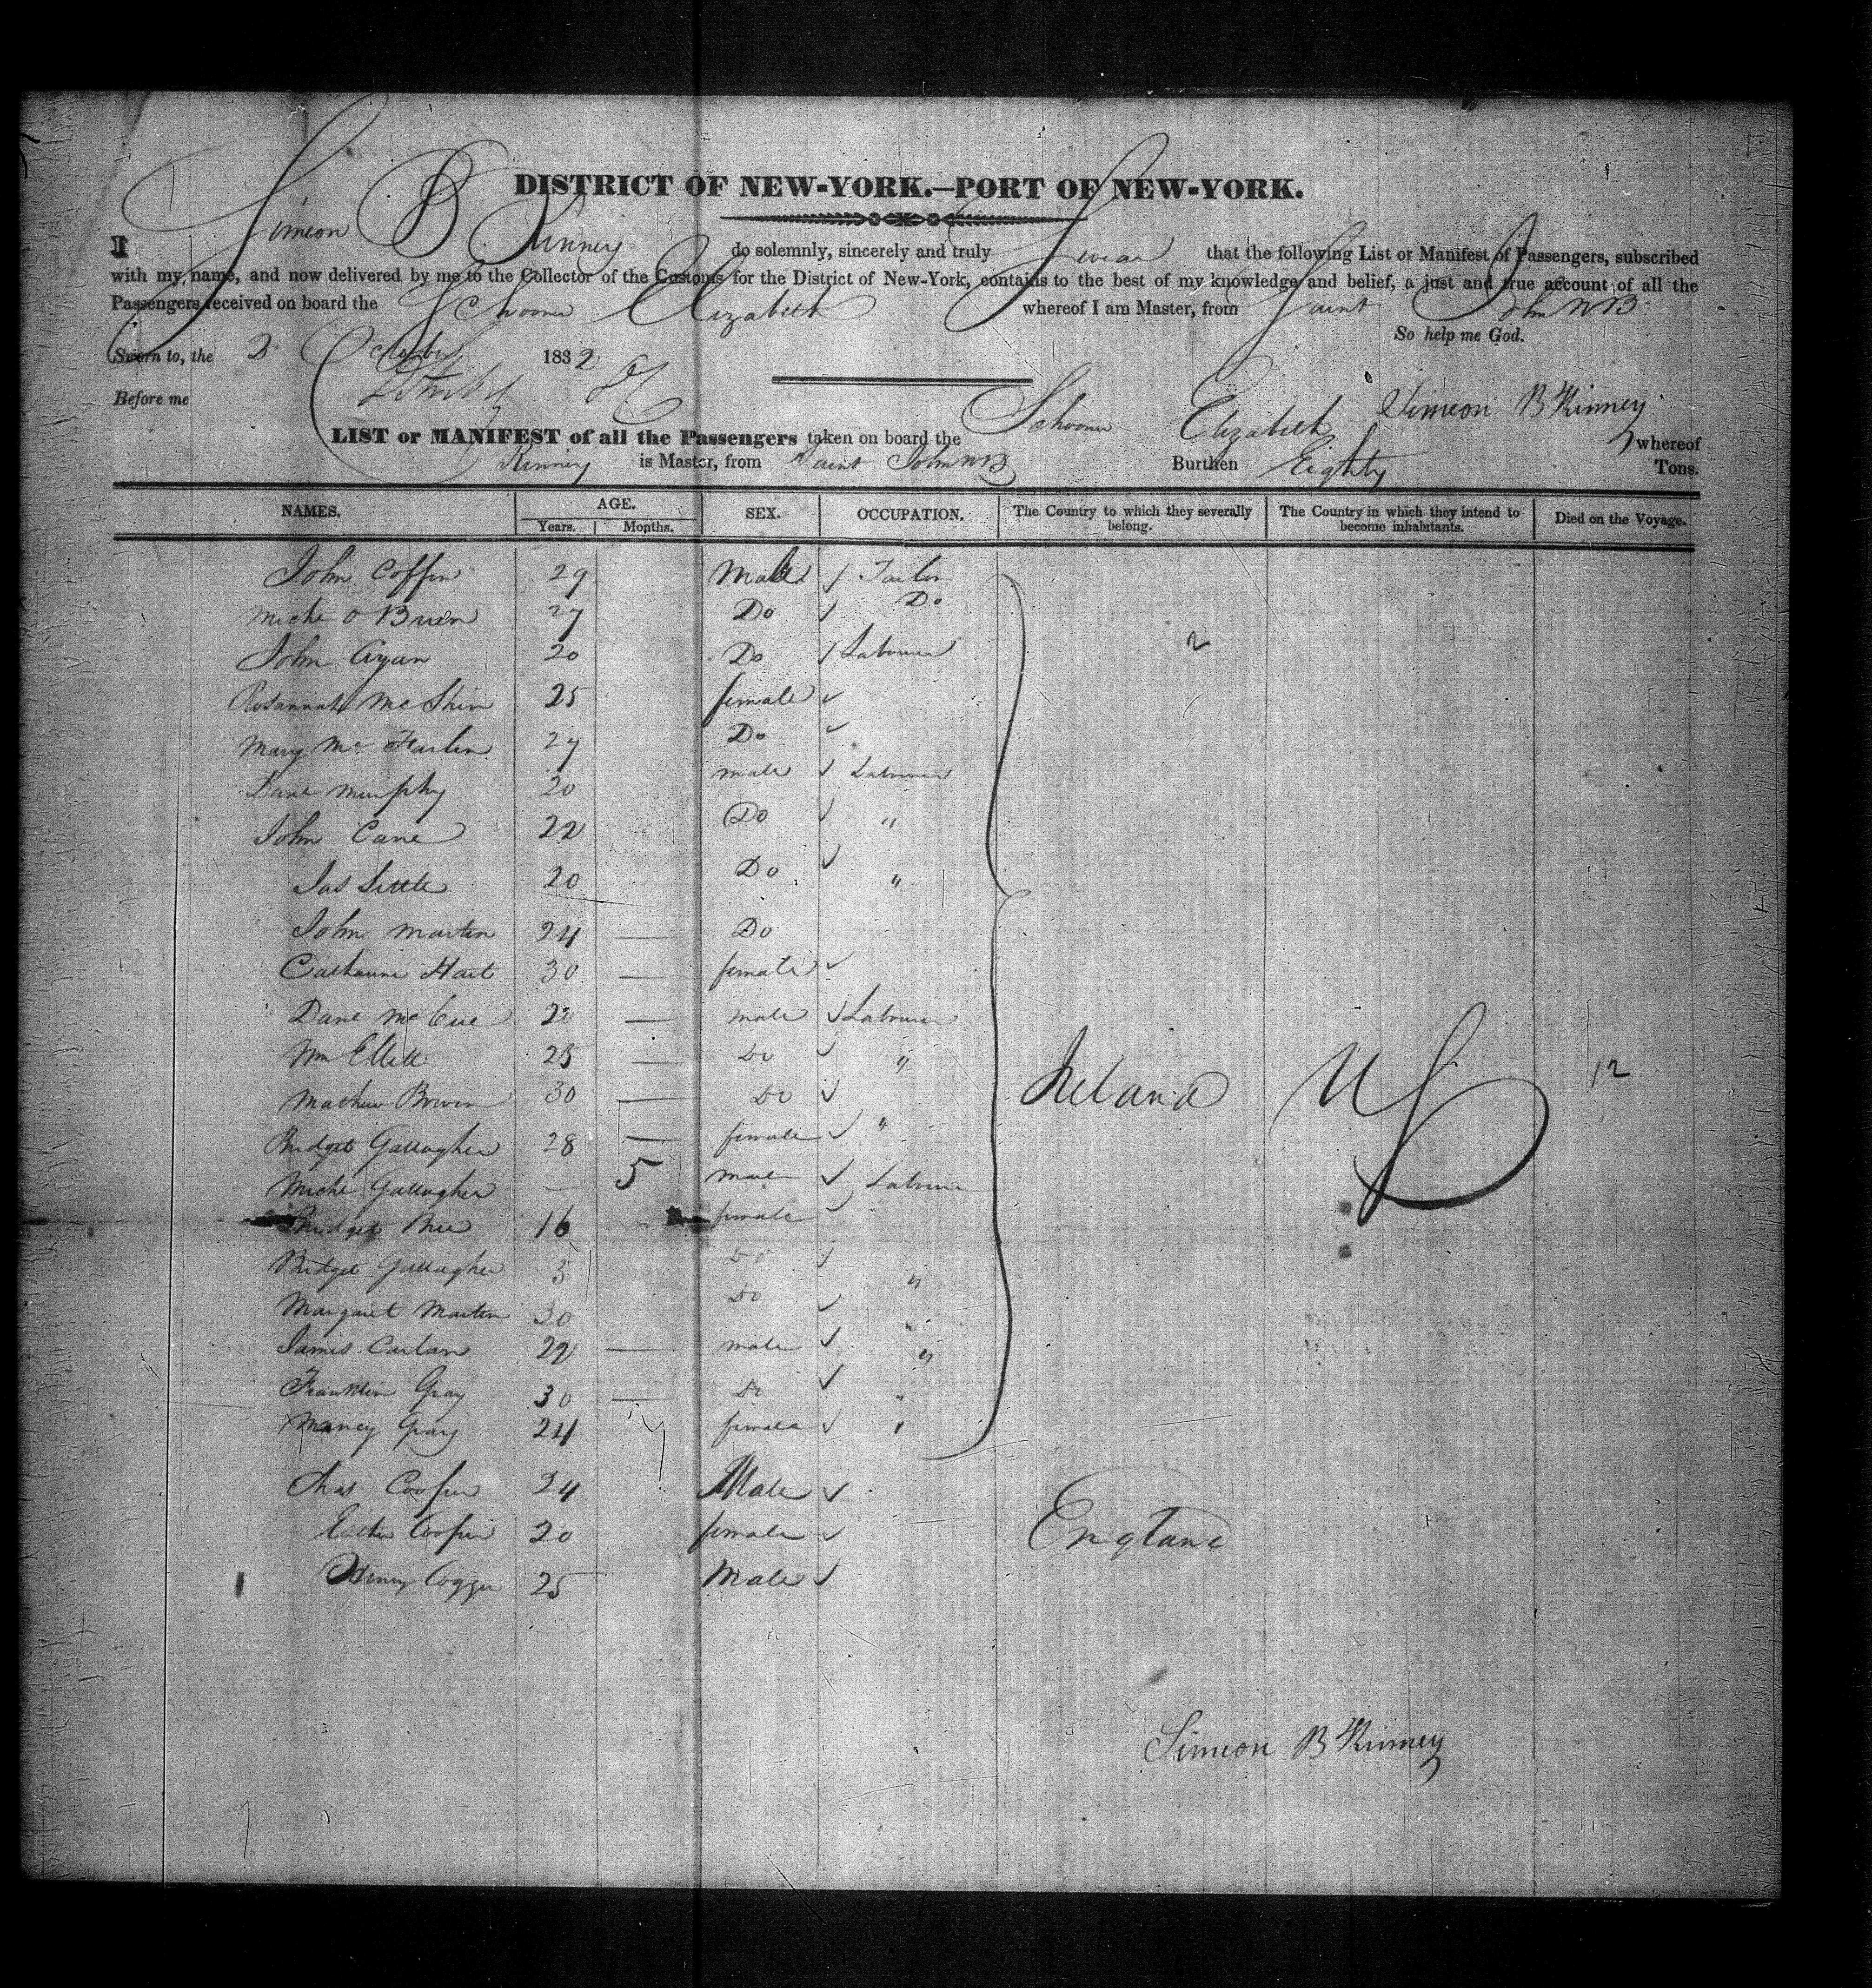 DISTRICT OF NEW-YORK.—PORT OF NEW-YORK.
I Simeon B Kinney do solemnly, sincerely and truly Swear that the following List or Manifest of Passengers, subscribed
with my name, and now delivered by me to the Collector of the Customs for the District of New-York, contains to the best of my knowledge and belief, a just and true account of all the
Passengers received on board the Schooner Elizabeth whereof I am Master, from Saint John NB
So help me God.
Sworn to, the 2 October 1832
Before me
Simeon B Kinney
LIST or MANIFEST of all the Passengers taken on board the Schooner Elizabeth whereof
Kinney is Master, from Saint John NB Burthen Eighty Tons.
NAMES. AGE. SEX. OCCUPATION. The Country to which they severally belong. The Country in which they intend to become inhabitants. Died on the Voyage.
Years. Months.
John Coffin 29 Male Tailor
Miche O Brien 27 Do Do
John 20 Do Labourer 2
Rosannah Mc 25 female
Mary Mc Farlen 27 Do
Dane Murphy 20 male Labourer
John Cane 22 Do "
Jas Little 20 Do "
John Martin 24 — Do
Catharine Hart 30 — female
Dane McCue 20 — male Labourer
Wm Ellett 25 — Do "
Mathew Bowen 30 — Do
Bridget Gallagher 28 — female "
Miche Gallagher — 5 male Labourer
Ireland US 12
Bridget 16 female
Bridget Gallagher 3 Do "
Margaret Martin 30 Do "
James Carlan 22 — male "
Franklin Gray 30 — Do "
Nancy Gray 24 female "
Chas Cooper 24 Male
Esther Cooper 20 female England
Henry Cogger 25 Male
Simeon B Kinney